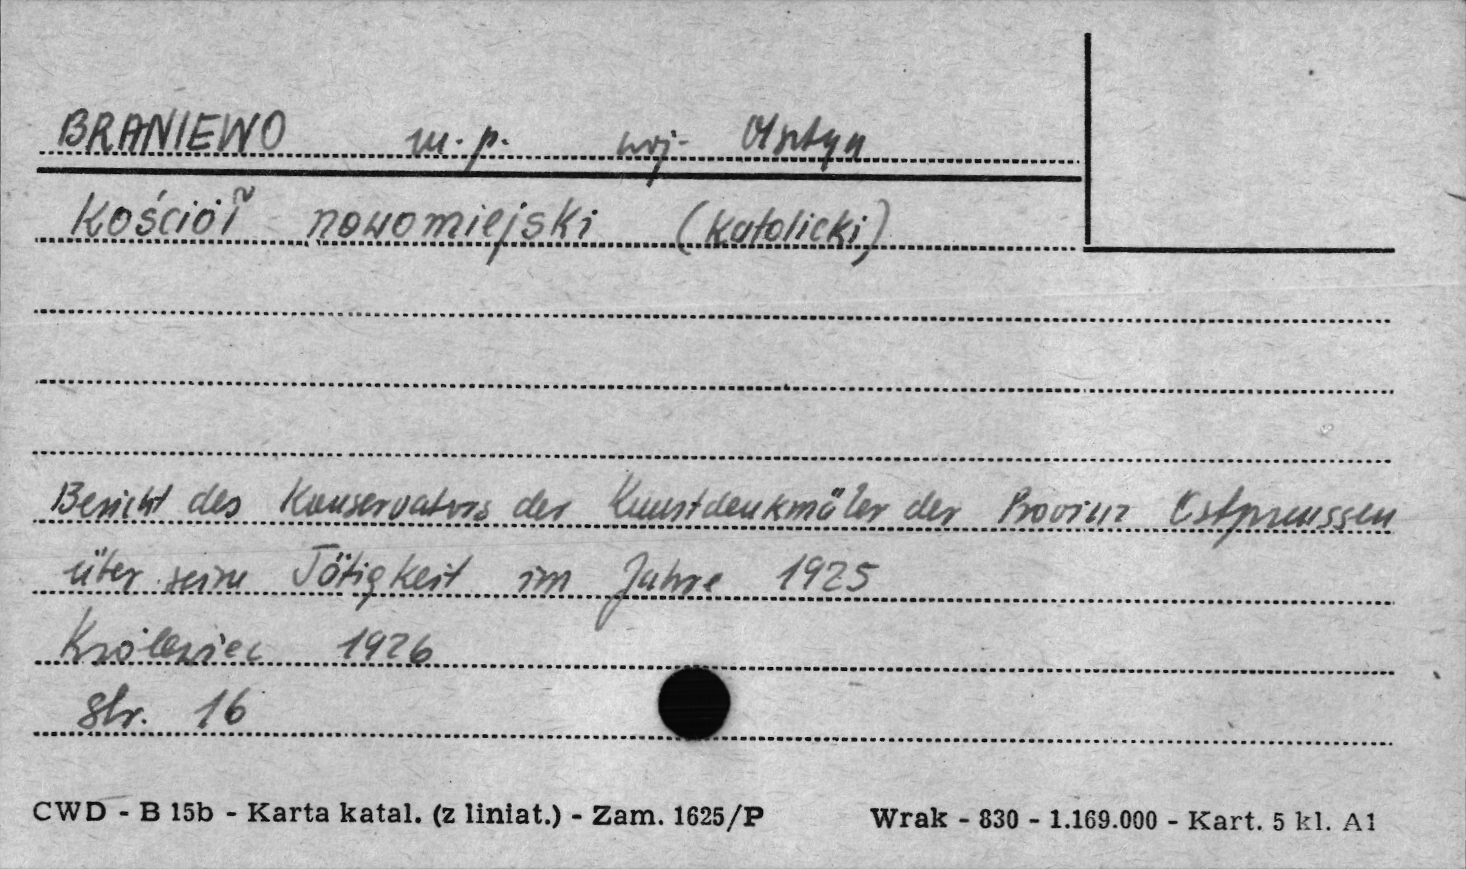 BRANIEWO m.p. woj. Olsztyn
Kościół nowomiejski (katolicki)
Bericht des Konservators der Kunstdenkmäler der Provinz Ostpreussen
über seine Tätigkeit im Jahre 1925
Królewiec 1926
Str. 16
CWD - B 15b - Karta katal. (z liniat.) - Zam. 1625/P Wrak - 830 - 1.169.000 - Kart. 5 kl. A1